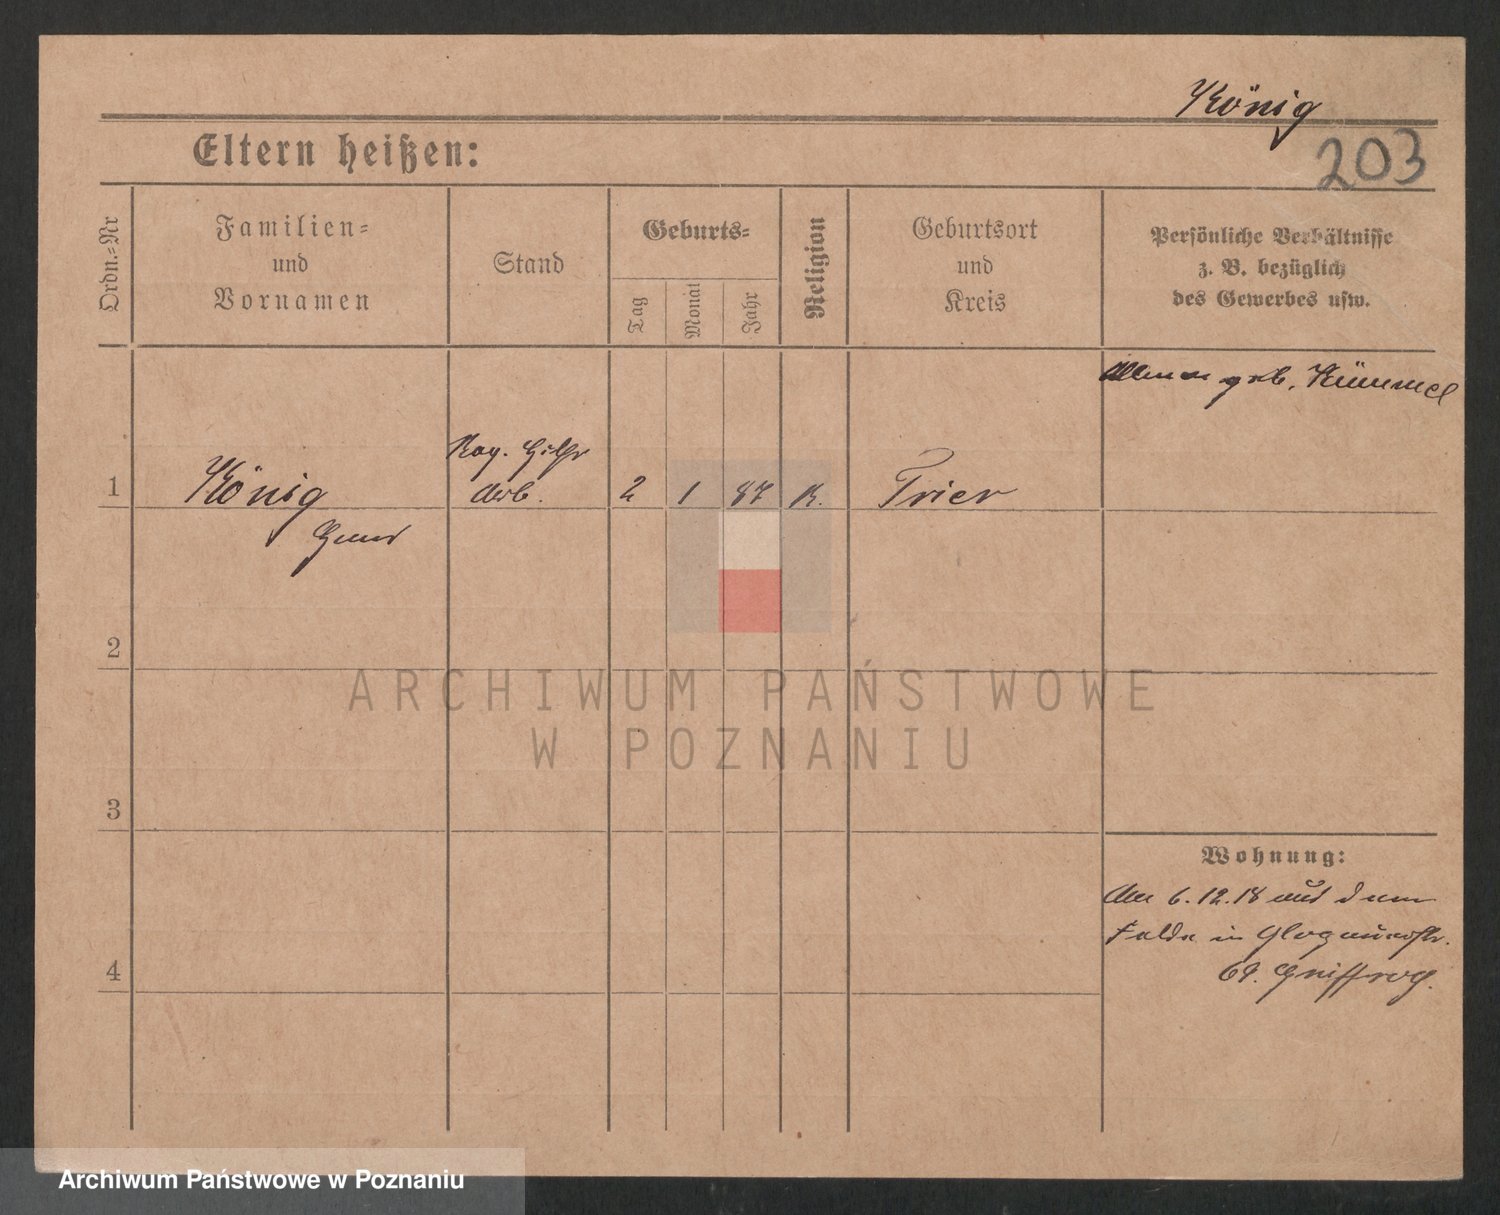 König
203
Eltern heißen:
Ordn.-Nr
Familien-
und
Vornamen
Stand
Geburts-
Tag
Monat
Jahr
Religion
Geburtsort
und
Kreis
Persönliche Verhältnisse
z. B. bezüglich
des Gewerbes usw.
geb. Kümmel
1
König
Stand
Arb.
2
1
87
K.
Trier
2
3
4
Wohnung:
Am 6.12.18 aus dem
Felde in Glogauerstr.
69.
ARCHIWUM PAŃSTWOWE
W POZNANIU
Archiwum Państwowe w Poznaniu